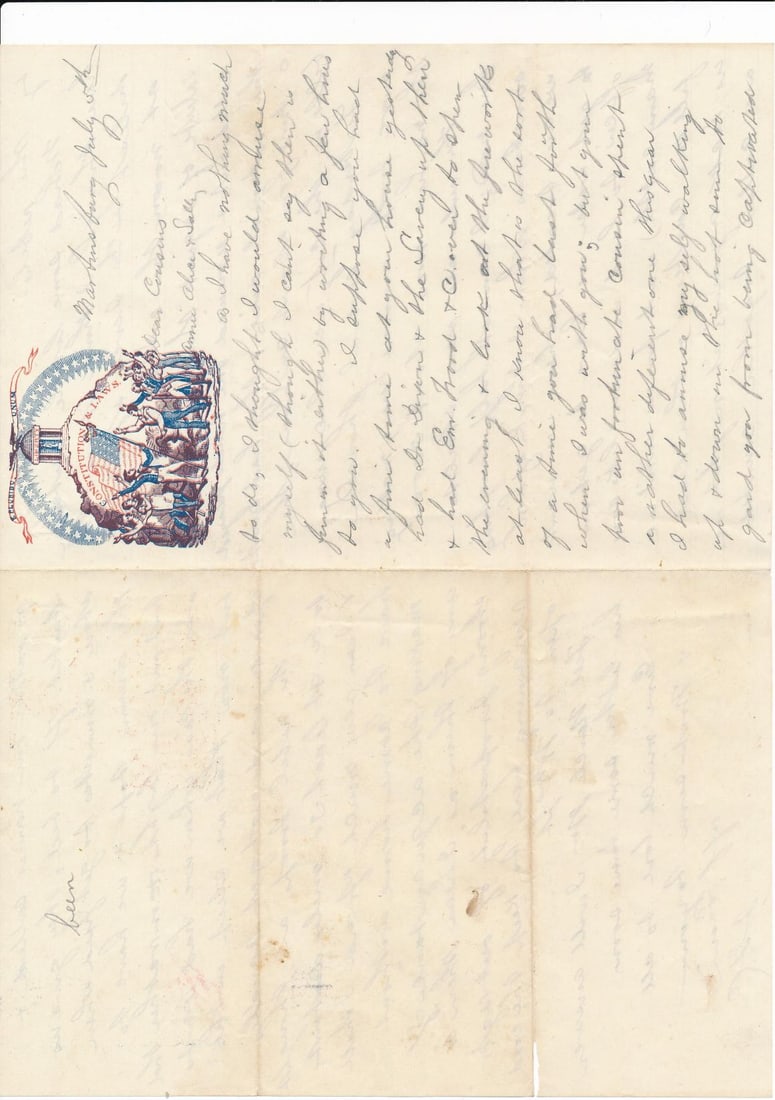 FLANKING UNUM
CONSTITUTION & LAWS.
Martinsburg July 5th
Dear Cousins
Annie Alice & Sally,
as I have nothing much
to do, I thought I would amuse
myself (though I can't say there is
fun in it either by working a few lines
to you. I suppose you had
a fine time at your house yesterday
had Dr Dixon & the up there
& had Em. Wood & C. over to spen
the evening & look at the fireworks
at least I know that is the sort
of a time you had last forth
when I was with you; but your
poor unfortunate Cousin spent
a rather different one this year
I had to amuse myself walking
up & down in the hot sun to
gard you from being captivated
been